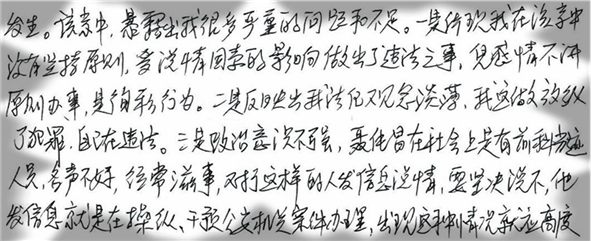 发生。该案中，暴露出我很多严重的问题和不足。一是体现我在该案中
没有坚持原则，受说情因素的影响做出了违法之事，凭感情不讲
原则办事，是徇私行为。二是反映出我法纪观念淡薄，我这做放纵
了犯罪，自己在违法。三是政治意识不强，聂佳昌在社会上是有前科劣迹
人员，名声不好，经常滋事，对于这样的人发信息说情，要坚决说不，他
发信息就是在操纵、干预公安机关案件办理，出现这种情况就应高度